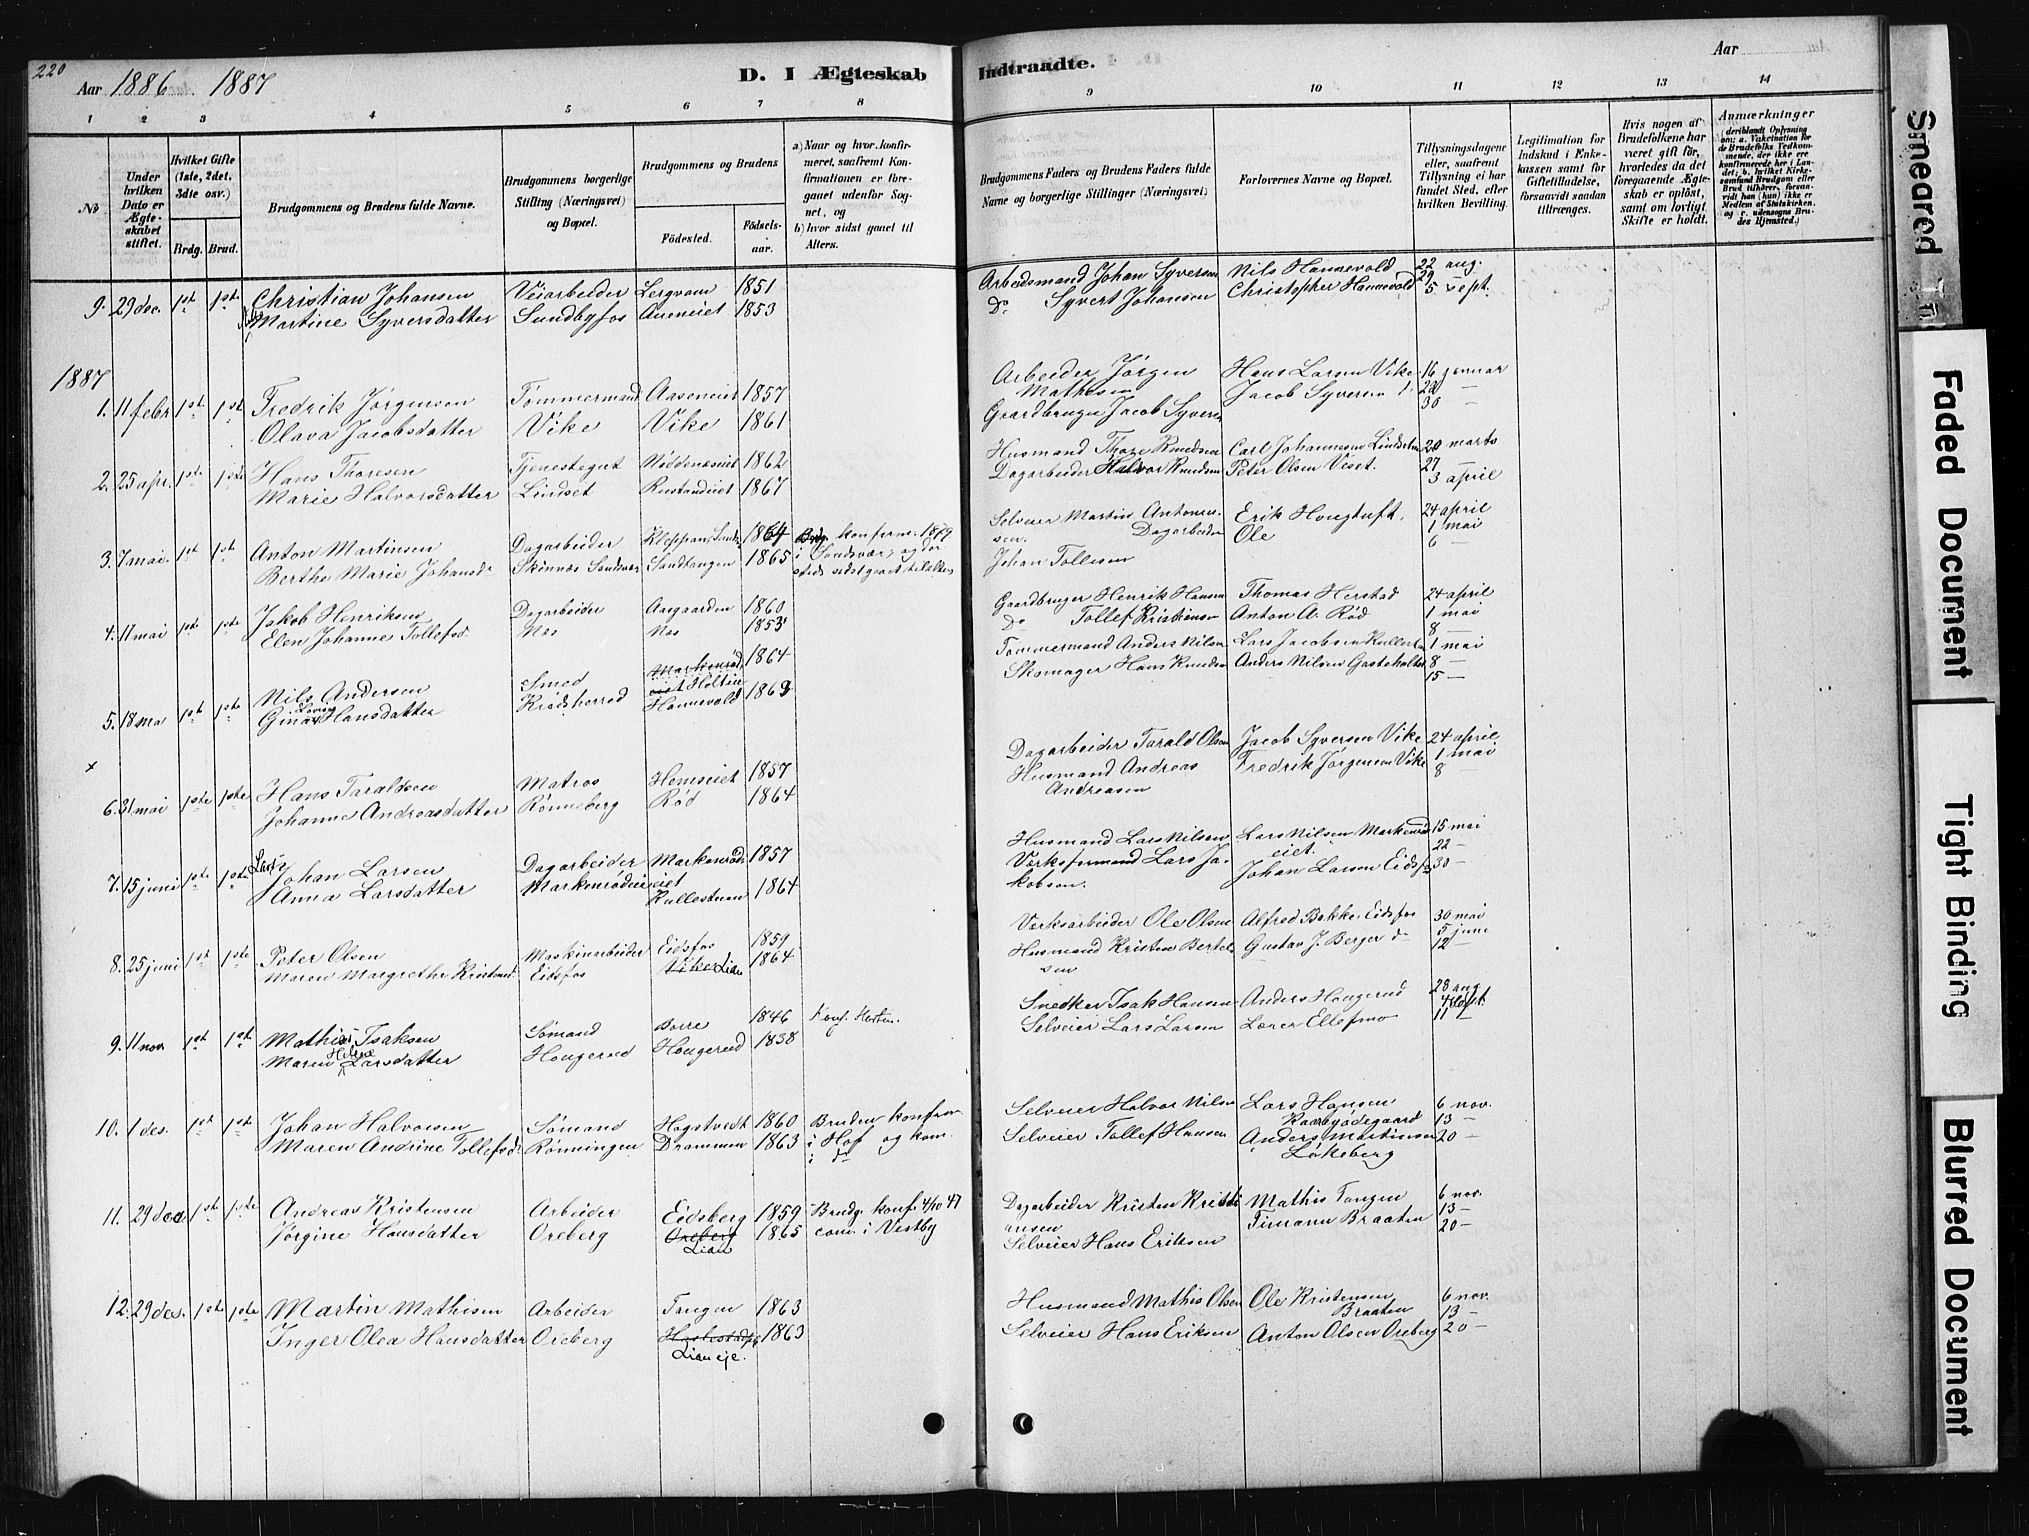 220
Aar 1886 1887
D. I Ægteskab
Indtraadte.
Aar
1 2 3 4 5 6 7 8 9 10 11 12 13 14
No
Under hvilken Dato er Ægteskabet stiftet.
Hvilket Gifte (1ste, 2det, 3die osv.)
Brdg. Brud.
Brudgommens og Brudens fulde Navne.
Brudgommens borgerlige Stilling (Næringsvei) og Bopæl.
Brudgommens og Brudens
Fødested.
Fødselsaar.
a) Naar og hvor konfirmeret, saafremt Konfirmationen er foregaaet udenfor Sognet, og
b) hvor sidst gaaet til Alters.
Brudgommens Faders og Brudens Faders fulde Navne og borgerlige Stillinger (Næringsvei)
Forlovernes Navne og Bopæl.
Tillysningsdagene eller, saafremt Tillysning ei har fundet Sted, efter hvilken Bevilling.
Legitimation for Indskud i Enkekassen samt for Giftetilladelse, forsaavidt saadan tiltrænges.
Hvis nogen af Brudefolkene har været gift før, hvorledes da det foregaaende Ægteskab er opløst, samt om lovligt Skifte er holdt.
Anmærkninger
(deriblandt Oplysning om: a. Vakcination for de Brudefolks Vedkommende, der ikke ere konfirmerede her i Landet; b. hvilket Kirkesamfund Brudgom eller Brud tilhører, forsaavidt han (hun) ikke er Medlem af Statskirken, og c. udensogns Brudes Hjemsted.)
9. 29 dec. 1ste 1ste Christian Johansen Veiarbeider Lergvam 1851 Arbeidsmand Johan Syversen Nils Hannevold 22 aug.
Martine Syversdatter Sundbyfos Aaseneiet 1853 Do Syvert Johansen Christopher Hannevold 29
5 sept.
1887
1. 11 febr 1ste 1ste Fredrik Jørgensen Tømmermand Aaseneiet 1857 Arbeider Jørgen Mathisen Hans Larsen Vike 16 januar
Olava Jacobsdatter Vike Vike 1861 Gaardbruger Jacob Syvers. Jacob Syversen 23 —
30 —
2. 25 apr. 1ste 1ste Hans Thoresen Tjenestegut Nøddenæseiet 1862 Husmand Thore Knudsen Carl Johannesen Lindset 20 marts
Marie Halvorsdatter Lindset Rustandeiet 1867 Dagarbeider Halvor Knudsen Peter Olsen Viset. 27 —
3 april
3. 7 mai 1ste 1ste Anton Martinsen Dagarbeider 1864 Brdg konfirm. 1879 Selveier Martin Antonsen. Erik Hougtuft. 24 april
Berthe Marie Johansd. Skinnes Sandsvær Sandtangen 1865 i Sandsvær, og dersteds sidst gaaet til alters Dagarbeider Johan Tollesen Ole 1 mai
6 —
4. 17 mai 1ste 1ste Jakob Henriksen Dagarbeider Aasgaarden 1860 Gaardbruger Henrik Hansen Thomas Herstad 24 april
Elen Johanne Tollefsd. Nes Nes 1853 Do Tollef Kristiansen Anton A. Rød 1 mai
8 —
5. 18 mai 1ste 1ste Nils Andersen Smed Holtin 1864 Tømmermand Anders Nilsen Lars Jacobsen 1 mai
Gina Lovise Hansdatter Krødsherred Hannevold 1863 Skomager Hans Knudsen Anders Nilsen 8 —
15 —
x
6. 31 mai 1ste 1ste Hans Taraldsen Matros Hemseiet 1857 Dagarbeider Tarald Olsen Jacob Syversen Vike 24 april
Johanne Andreasdatter Rønneberg Rød 1864 Husmand Andreas Andreasen Fredrik Jørgensen Vike 1 mai
8 —
7. 15 juni 1ste 1ste Johan Larsen Dagarbeider Markenrødeiet 1857 Husmand Lars Nilsen Lars Nilsen Markenrødeiet. 15 mai
Anna Larsdatter Markenrødeie Kullestuen 1864 Værksformand Lars Jakobsen. Johan Larsen Eidsfos 22 —
30 —
8. 25 juni 1ste 1ste Peter Olsen Maskinarbeider Eidsfos 1859 Værksarbeider Ole Olsen Alfred Bakke Eidsfos 30 mai
Maren Margrethe Kristensd. Eidsfos Vike Lian 1864 Husmand Kristen Bertelsen Gustav J. Berger do 5 juni
12 —
9. 11 nov 1ste 1ste Mathias Isaksen Sømand Borre 1846 Konf. Horten. Snedker Isak Hansen Anders Hougerud 28 aug
Maren Helene Larsdatter Hougerud Hougerud 1858 Selveier Lars Larsen Lærer Ellefmo 4 sept.
11 —
10. 1 des. 1ste 1ste Johan Halvorsen Sømand Hogstvedt 1860 Bruden konfirm. Selveier Halvor Nilsen Lars Hansen Kaarbyødegaard 6 nov.
Maren Andrine Tollefsd. Rønningen Drammen 1863 i Hof og kom. i do Selveier Tollef Hansen Anders Martinsen Løkeberg 13 —
20 —
11. 29 dec 1ste 1ste Andreas Kristensen Arbeider Eidsberg 1859 Brudg. konf. 4/10 Dagarbeider Kristen Kristiansen Mathis Tangen 6 nov.
Jørgine Hansdatter Oreberg Oreberg Lian 1865 com. i Vestby Selveier Hans Eriksen Timann Braaten 13 —
20 —
12. 29 des. 1ste 1ste Martin Mathisen Arbeider Tangen 1863 Husmand Mathis Olsen Ole Kristensen Braaten 6 nov.
Inger Olea Hansdatter Oreberg Lian eje. 1863 Selveier Hans Eriksen Anton Olsen Oreberg 13 —
20 —
Smeared
Faded Document
Tight Binding
Blurred Document